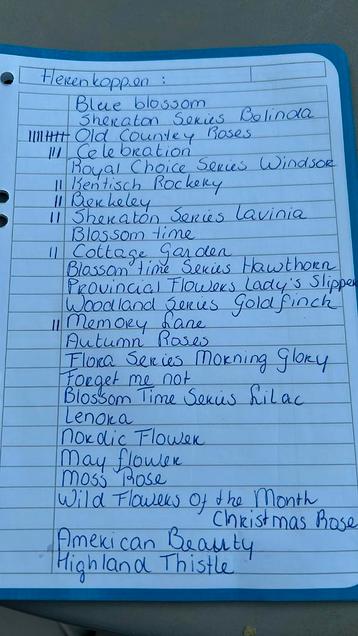 Herenkoppen :
Blue blossom
Sheraton Series Belinda
Old Country Roses
Celebration
Royal Choice Series Windsor
Kentisch Rockery
Berkeley
Sheraton Series Lavinia
Blossom time
Cottage Garden
Blossom time Series Hawthorn
Provincial Flowers Lady's Slipper
Woodland Series Goldfinch
Memory Lane
Autumn Roses
Flora Series Morning Glory
Forget me not
Blossom Time Series Lilac
Lenora
Nordic Flower
May flower
Moss Rose
Wild Flowers Of the Month
Christmas Rose
American Beauty
Highland Thistle